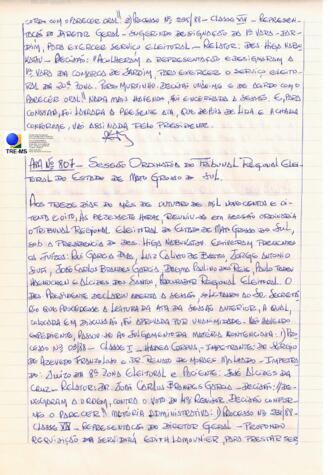 COTRA COM O PARECER ORAL". 2) PROCESSO Nº 205/88 - CLASSE VII - REPRESEN-
TAÇÃO DO DIRETOR GERAL - SUGERINDO DESIGNAÇÃO DA 1ª VARA - JAR-
DIM, PARA EXERCER SERVIÇO ELEITORAL - RELATOR: DES. HIGA
DECISÃO: "ACOLHERAM A REPRESENTAÇÃO E DESIGNARAM A
1ª VARA DA COMARCA DE JARDIM, PARA EXERCER O SERVIÇO ELEITO-
RAL DA 20ª ZONA. DECISÃO UNÂNIME E DE ACORDO COM O
PARECER ORAL". NADA MAIS HAVENDO, FOI ENCERRADA A SESSÃO. E, PARA
CONSTAR, FOI LAVRADA A PRESENTE ATA, QUE DEPOIS DE LIDA E ACHADA
CONFORME, VAI ASSINADA PELO PRESIDENTE.
TRE-MS
ATA Nº 807 - SESSÃO ORDINÁRIA DO TRIBUNAL REGIONAL ELEI-
TORAL DO ESTADO DE MATO GROSSO DO SUL.
AOS TREZE DIAS DO MÊS DE OUTUBRO DE MIL NOVECENTOS E OI-
TENTA E OITO, ÀS DEZESSETE HORAS, REUNIU-SE EM SESSÃO ORDINÁRIA
O TRIBUNAL REGIONAL ELEITORAL DO ESTADO DE MATO GROSSO DO SUL,
SOB A PRESIDÊNCIA DO DES. HIGA NABUKATSU. ESTIVERAM PRESENTES
OS JUÍZES: RUI GARCIA DIAS, LUIZ CALIXTO DE BASTOS, JORGE ANTONIO
SIUFI, JOSÉ CARLOS BRANDES GARCIA, PAULINO DOS REIS, PAULO TADEU
HAENDCHEN E ALCIDES DOS SANTOS, PROCURADOR REGIONAL ELEITORAL. O
DES. PRESIDENTE DECLAROU ABERTA A SESSÃO, SOLICITANDO AO SR. SECRETÁ-
RIO QUE PROCEDESSE A LEITURA DA ATA DA SESSÃO ANTERIOR, A QUAL,
COLOCADA EM DISCUSSÃO, FOI APROVADA POR UNANIMIDADE.
PASSOU-SE AO JULGAMENTO DA MATÉRIA CONTENCIOSA: 1) PRO-
CESSO Nº - CLASSE I - HABEAS CORPUS - IMPETRANTE: DR. SÉRGIO
DE AZEVEDO E DR. RENATO DE MORAES - IMPETRA-
DO: JUÍZO DA 8ª ZONA ELEITORAL E PACIENTE: JOSÉ ALCIDES DA
CRUZ - RELATOR: DR. JOSÉ CARLOS BRANDES GARCIA - DECISÃO: "DE-
NEGARAM A ORDEM, CONTRA O VOTO DO DECISÃO CONFOR-
ME O PARECER". MATÉRIA ADMINISTRATIVA: 1) PROCESSO Nº /88 -
CLASSE VII - REPRESENTAÇÃO DO DIRETOR GERAL - PROPONDO
REQUISIÇÃO DA SERVIDORA EDITH LAMOUNIER, PARA PRESTAR SER